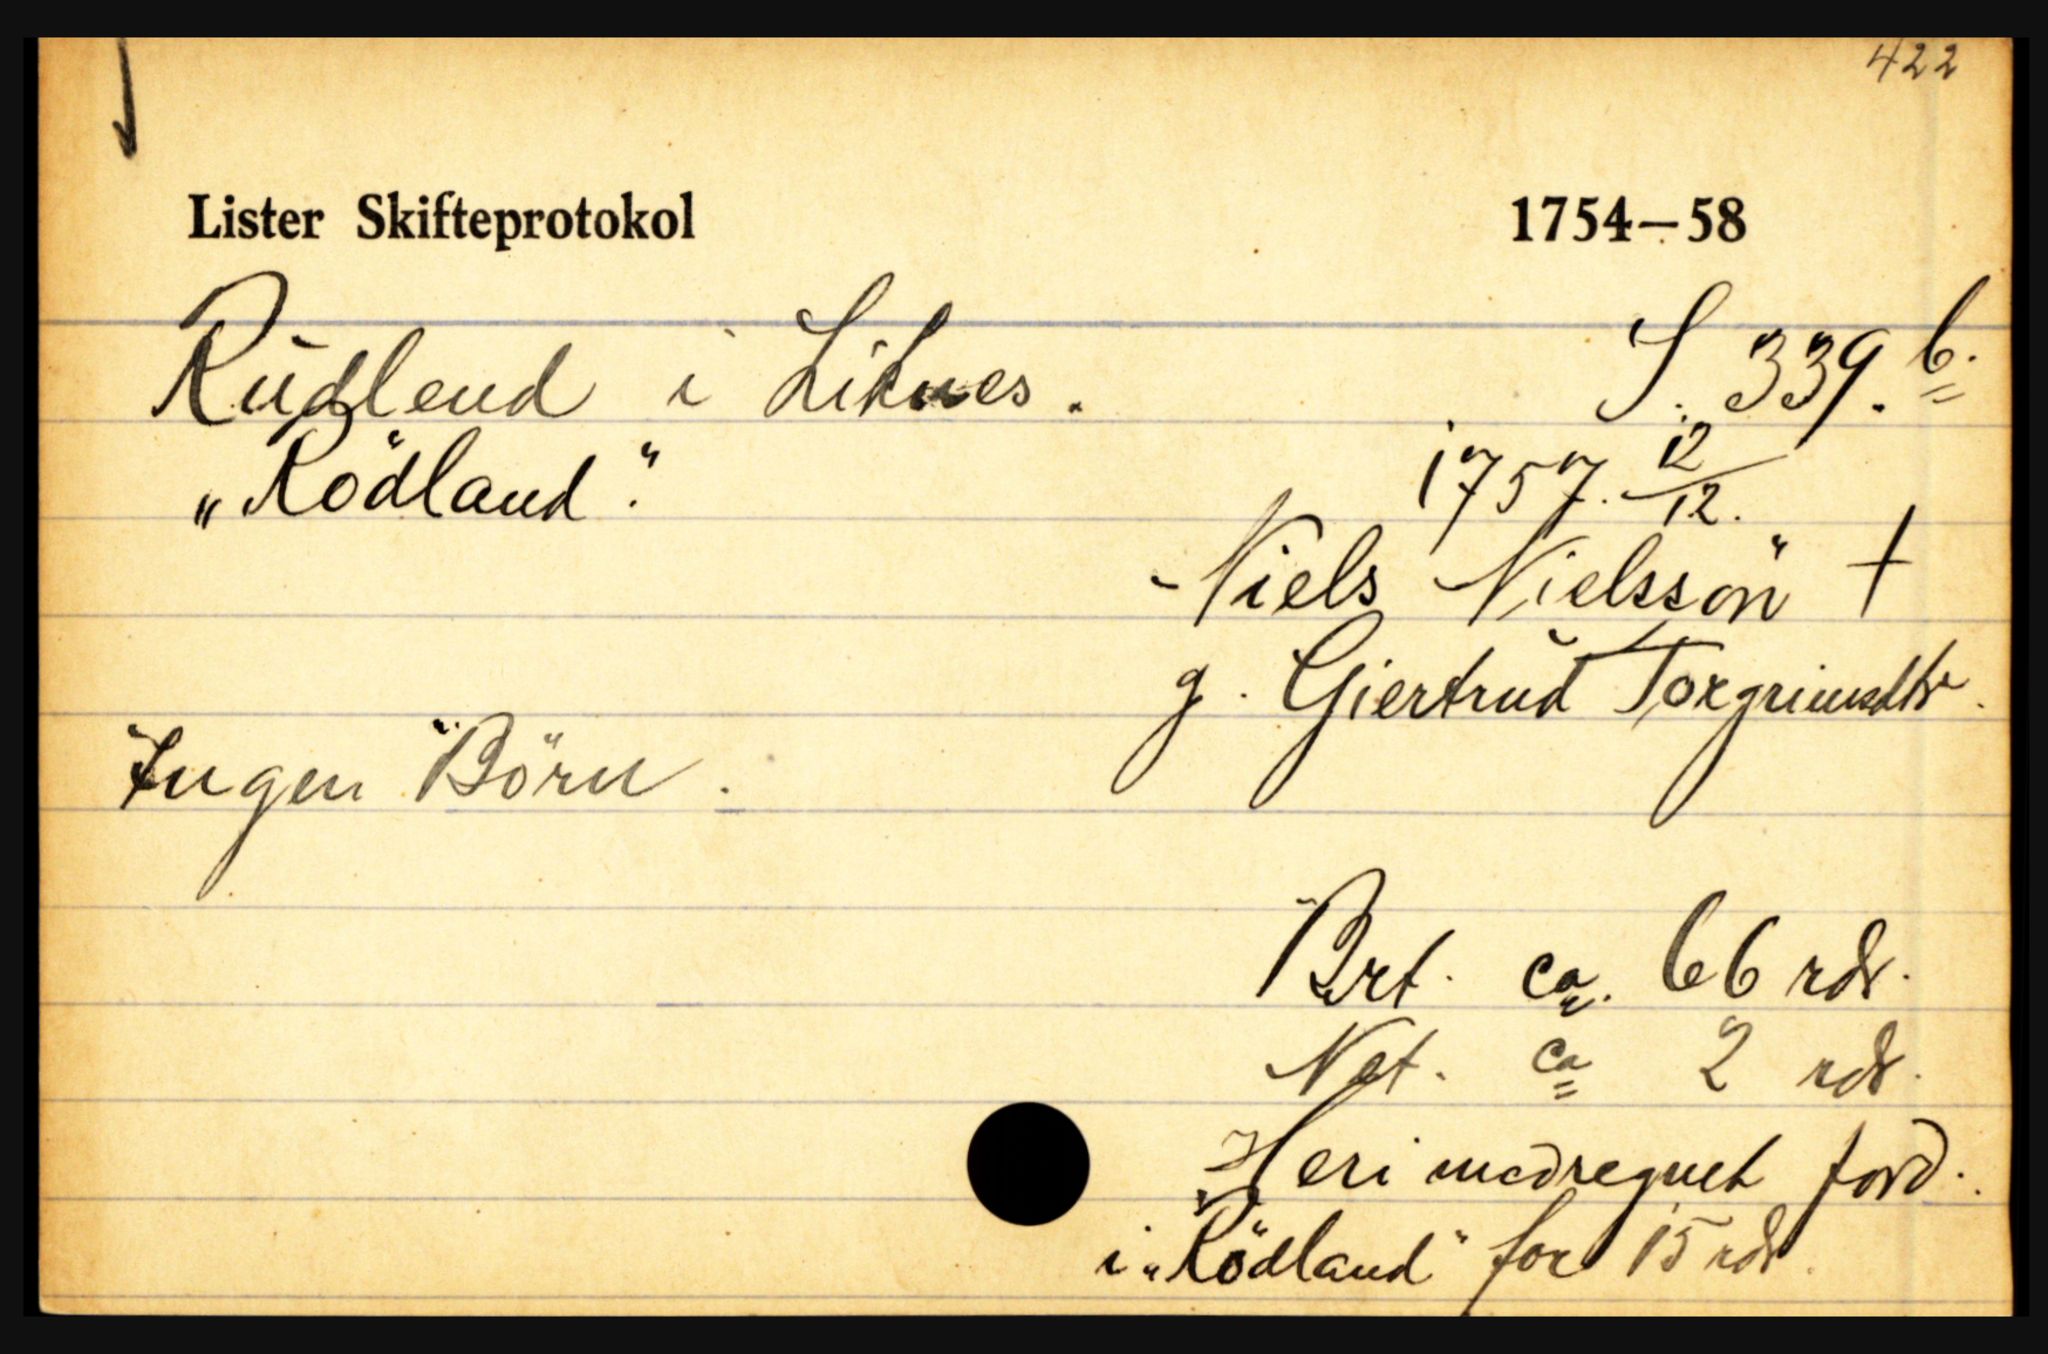 422
Lister Skifteprotokol 1754–58
Rüdlend i Liknes. S. 339.b.
"Rödland". 1757. 12/12.
Niels Nielssön †
g. Giertrud Torgrimsdtr.
Ingen Börn.
Brt. ca. 66 rdr.
Net. ca 2 rdr.
Heri medregnet ford.
i "Rödland" for 15 rdr.